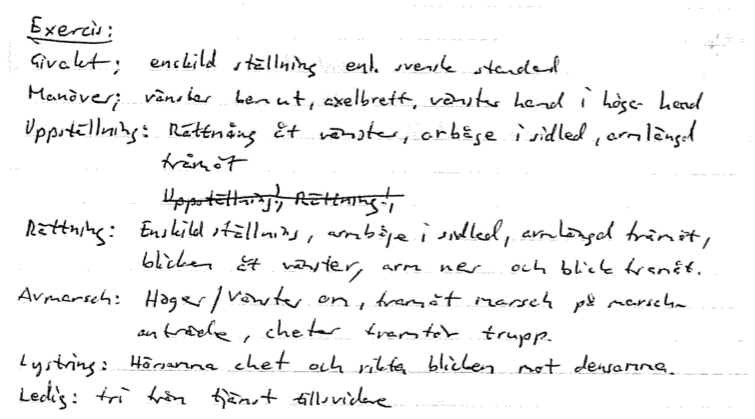 Exercis:
Givakt: enskild ställning enl. svensk standard
Manöver: vänster ben ut, axelbrett, vänster hand i höger hand
Uppställning: Rättning åt vänster, armbåge i sidled, armlängd
framåt
Uppställning!, Rättning!,
Rättning: Enskild ställning, armbåge i sidled, armlängd framåt,
blicken åt vänster, arm ner och blick framåt.
Avmarsch: Höger/Vänster om, framåt marsch på marsch-
anträde, chefer framför trupp.
Lystring: Hörsamma chef och rikta blicken mot densamma.
Ledig: fri från tjänst tillsvidare